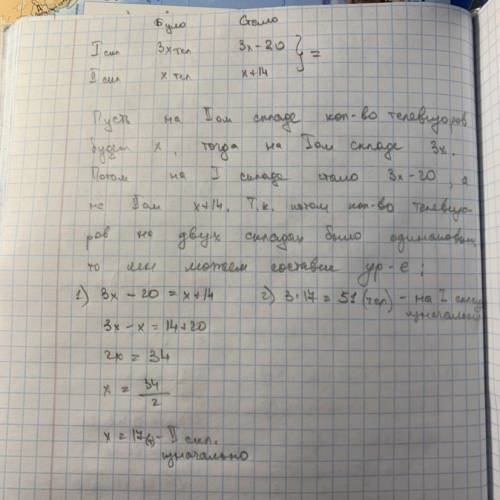 Було Стало
I скл 3x тел 3x-20 } =
II скл x тел x+14
Пусть на II ом складе кол-во телевизоров
будет x, тогда на I ом складе 3x.
Потом на I складе стало 3x-20, а
на II ом x+14. Т.к. потом кол-во телевизо-
ров на двух складах было одинаковым,
то мы можем составим ур-е:
1) 3x - 20 = x+14 2) 3·17 = 51 (тел) - на I складе
3x - x = 14+20 изначально
2x = 34
x = 34/2
x = 17(т) - II скл.
изначально